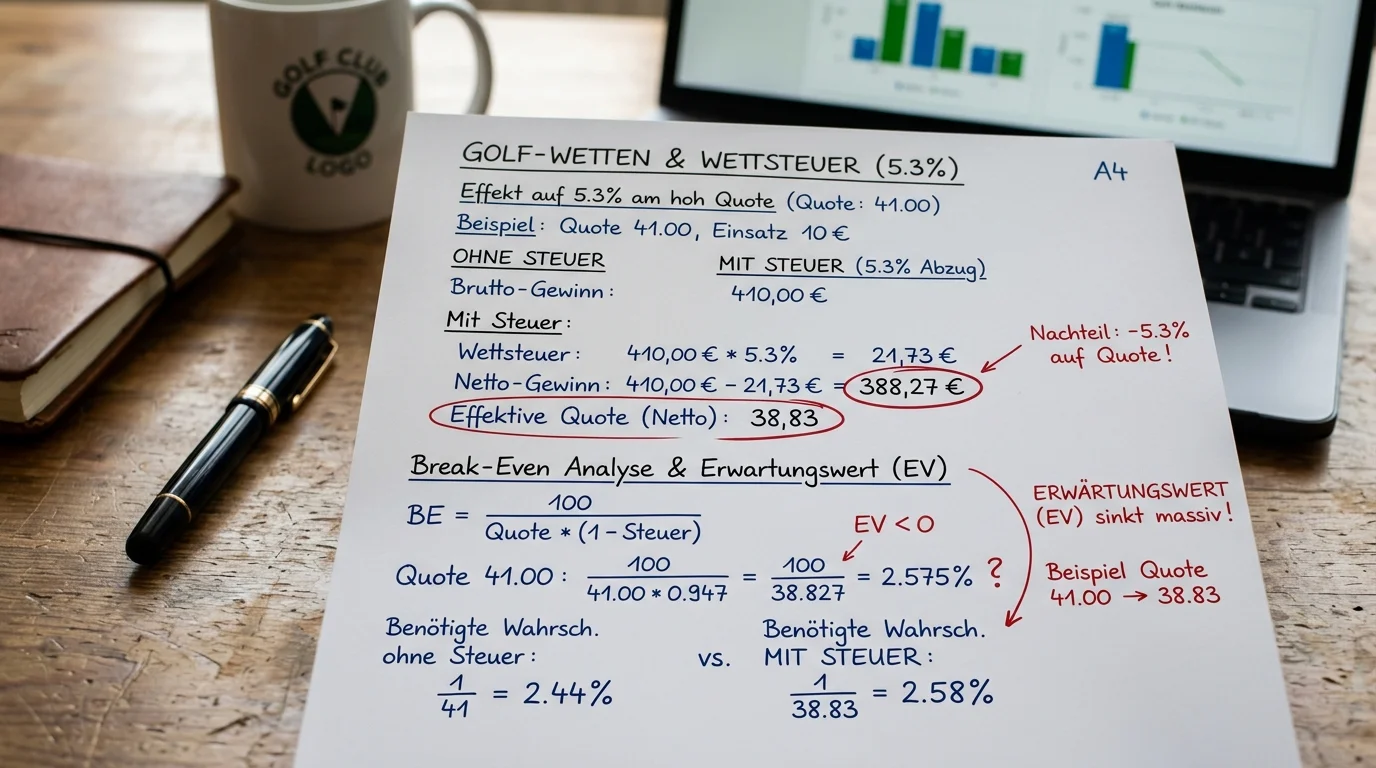 GOLF CLUB
LOGO
GOLF-WETTEN & WETTSTEUER (5.3%)
A4
Effekt auf 5.3% am hoh Quote (Quote: 41.00)
Beispiel: Quote 41.00, Einsatz 10 €
OHNE STEUER
MIT STEUER (5.3% Abzug)
Brutto-Gewinn: 410,00 €
Mit Steuer:
Wettsteuer: 410,00 € * 5.3% = 21,73 €
Netto-Gewinn: 410,00 € – 21,73 € = 388,27 €
Effektive Quote (Netto): 38,83
Nachteil: -5.3%
auf Quote!
Break-Even Analyse & Erwartungswert (EV)
BE = 100 / Quote * (1 – Steuer)
EV < 0
Quote 41.00: 100 / 41.00 * 0.947 = 100 / 38.827 = 2.575% ?
ERWÄRTUNGSWERT
(EV) sinkt massiv!
Beispiel Quote
41.00 → 38.83
Benötigte Wahrsch.
ohne Steuer:
1 / 41 = 2.44%
vs.
Benötigte Wahrsch.
MIT STEUER:
1 / 38.83 = 2.58%